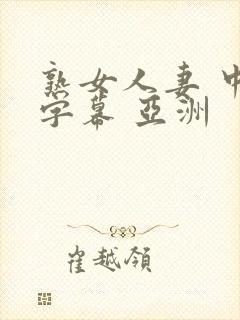 熟女人妻 中
字幕 亞洲
崔越領